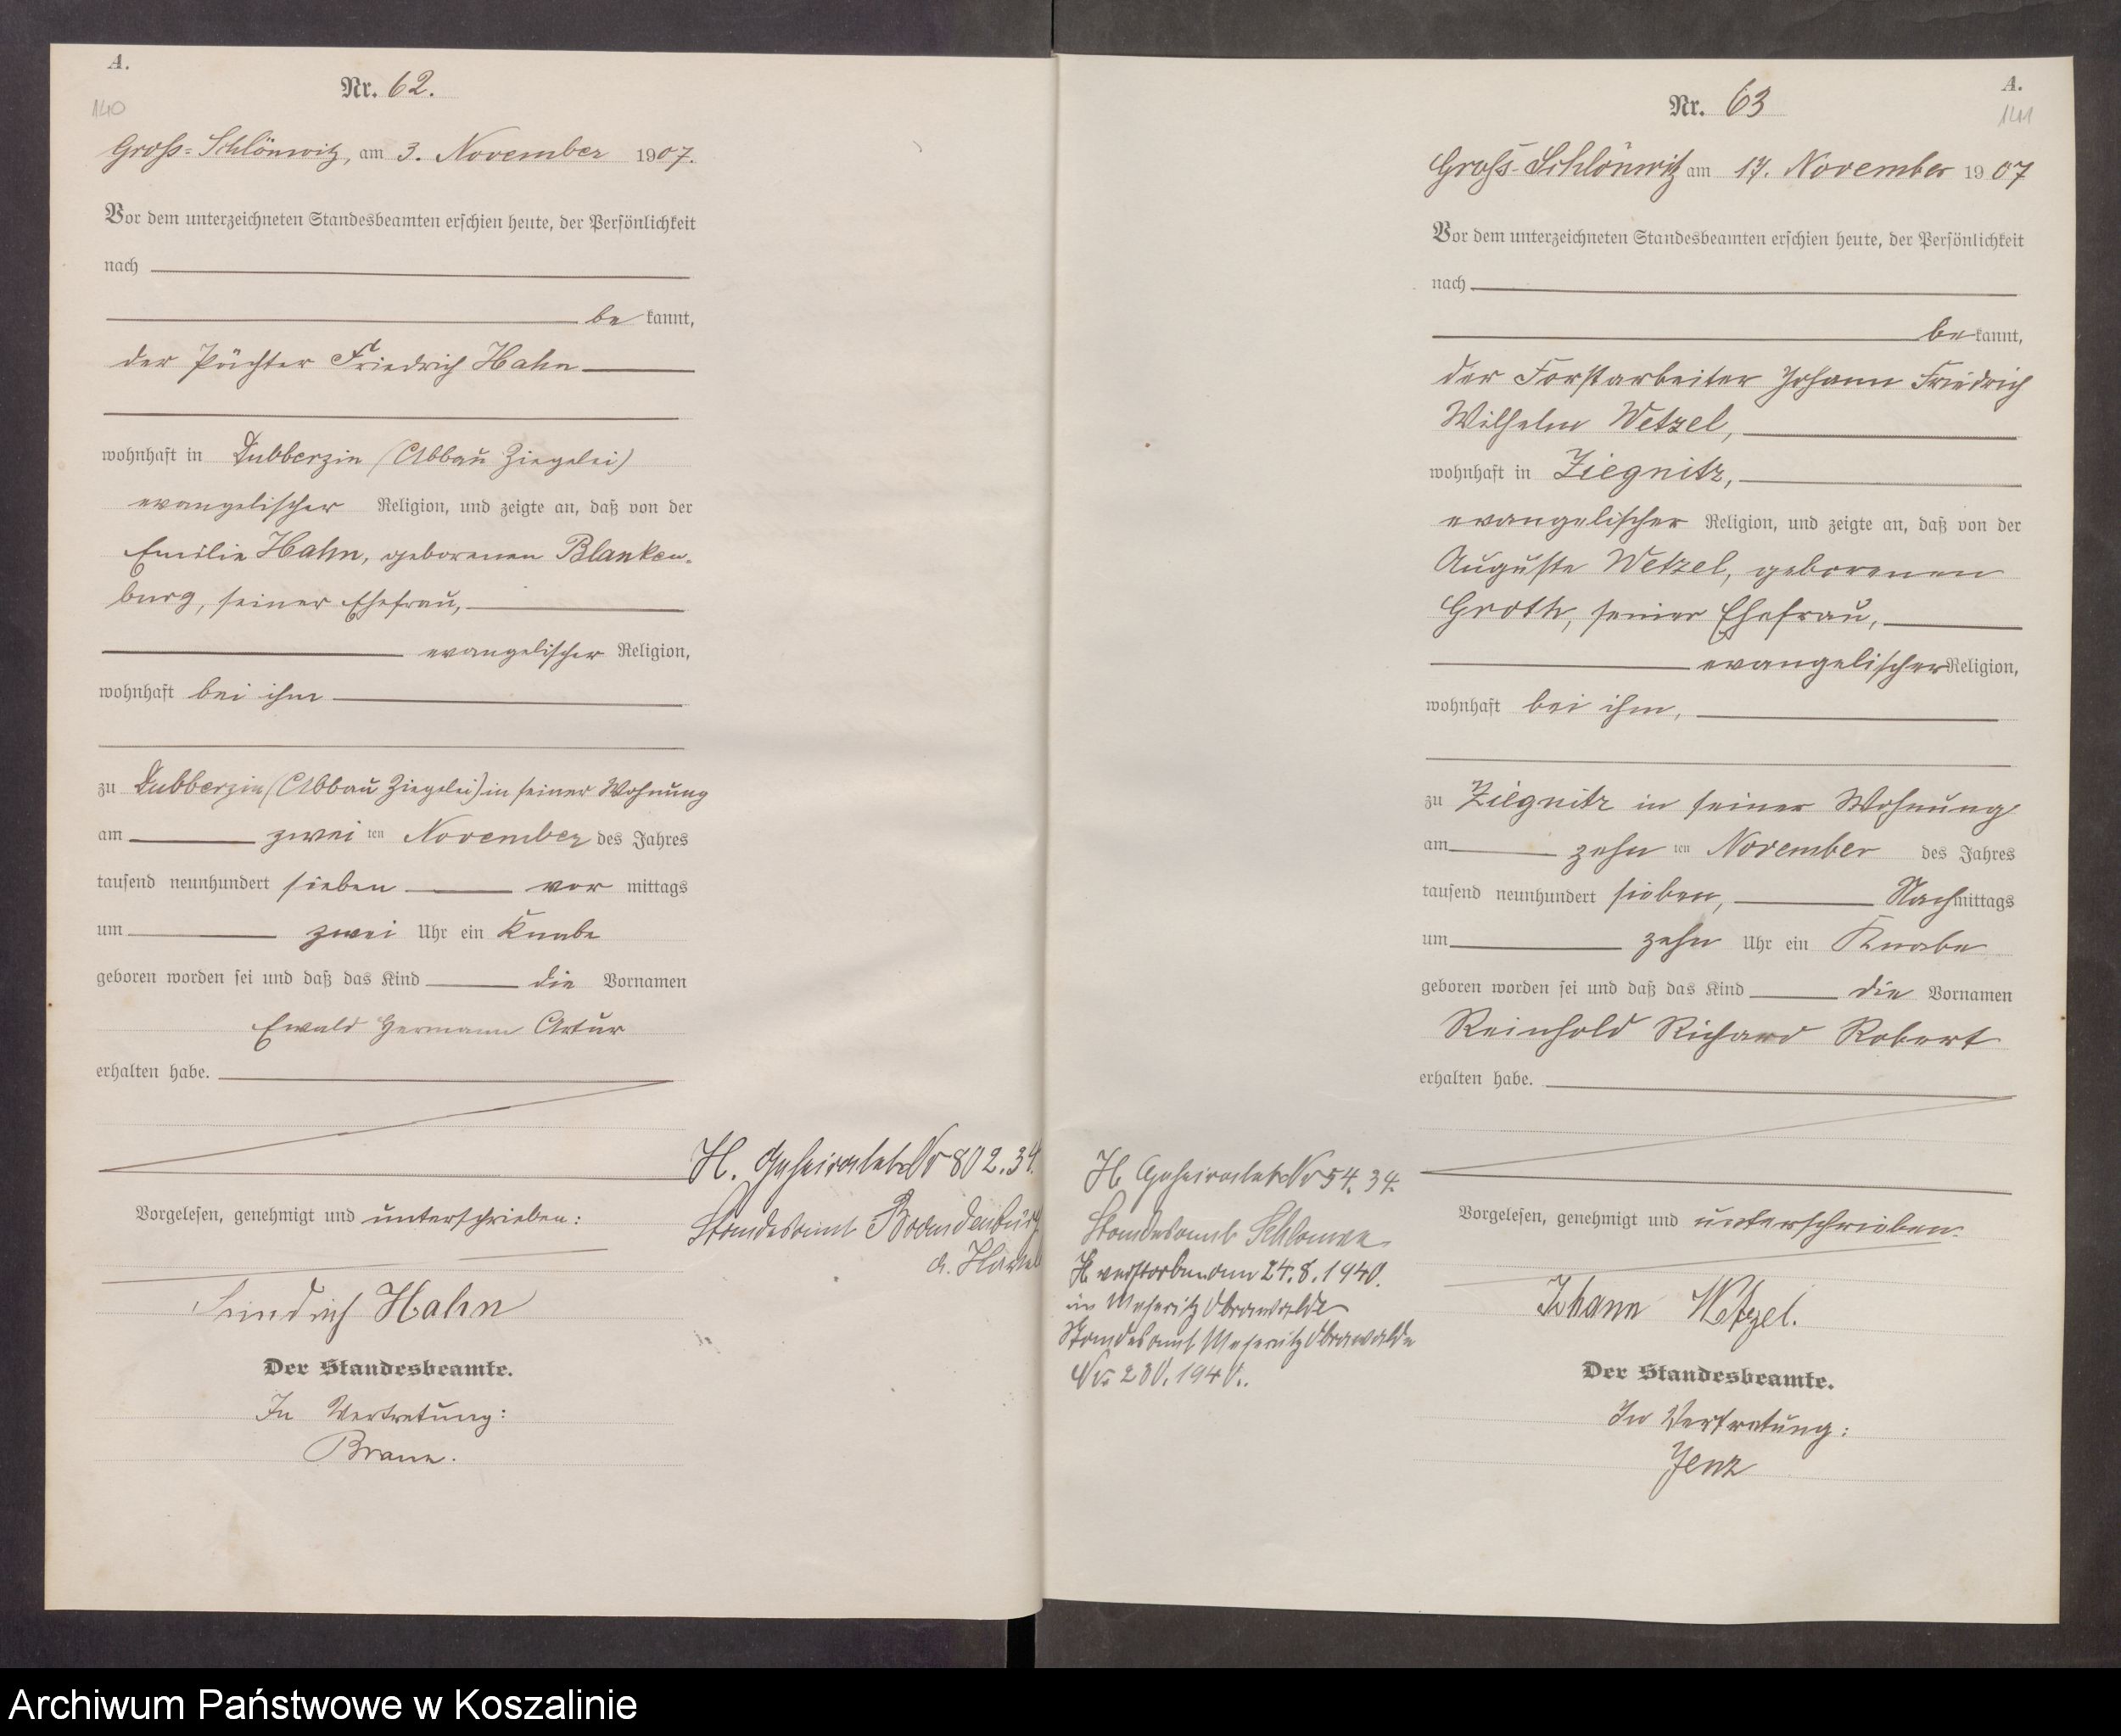 A.
140
Nr. 62.
Gross-Schlönwitz, am 3. November 1907.
Vor dem unterzeichneten Standesbeamten erschien heute, der Persönlichkeit
nach
be kannt,
der Pächter Friedrich Hahn
wohnhaft in Dubberzin (Abbau Ziegelei)
evangelischer Religion, und zeigte an, daß von der
Emilie Hahn, geborenen Blanken-
burg, seiner Ehefrau,
evangelischer Religion,
wohnhaft bei ihm
zu Dubberzin (Abbau Ziegelei) in seiner Wohnung
am zwei ten November des Jahres
tausend neunhundert sieben vor mittags
um zwei Uhr ein Knabe
geboren worden sei und daß das Kind die Vornamen
Ewald Hermann Artur
erhalten habe.
Vorgelesen, genehmigt und unterschrieben:
Friedrich Hahn
Der Standesbeamte.
In Vertretung:
H. Geheiratet Nr 802.34.
Standesamt Brandenburg
a. Havel
A.
141
Nr. 63
Groß-Schlönwitz am 17. November 1907
Vor dem unterzeichneten Standesbeamten erschien heute, der Persönlichkeit
nach
be kannt,
der Forstarbeiter Johann Friedrich
Wilhelm Wetzel,
wohnhaft in Ziegnitz,
evangelischer Religion, und zeigte an, daß von der
Auguste Wetzel, geborenen
Groth, seiner Ehefrau,
evangelischer Religion,
wohnhaft bei ihm,
zu Ziegnitz in seiner Wohnung
am zehn ten November des Jahres
tausend neunhundert sieben, Nach mittags
um zehn Uhr ein Knabe
geboren worden sei und daß das Kind die Vornamen
Reinhold Richard Robert
erhalten habe.
Vorgelesen, genehmigt und unterschrieben:
Johann Wetzel.
Der Standesbeamte.
In Vertretung:
Jenz
H. Geheiratet Nr 54.34.
Standesamt
H. verstorben am 24.8.1940.
in Meseritz Obrawalde
Standesamt Meseritz Obrawalde
Nr. 280.1940.
Archiwum Państwowe w Koszalinie